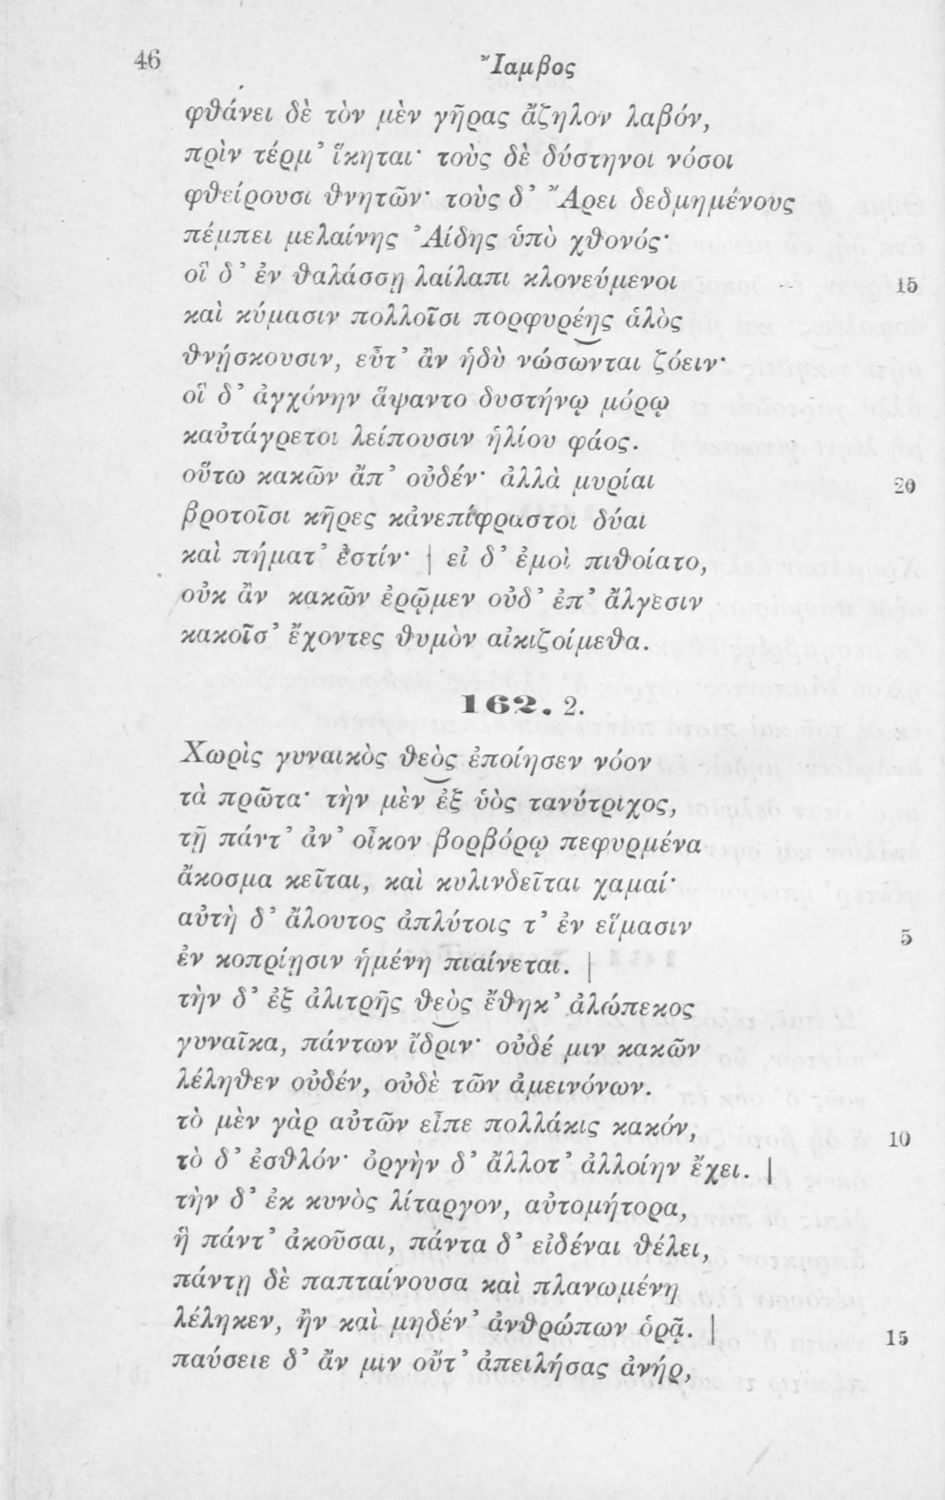 46 Ἴαμβος
φθάνει δὲ τὸν μὲν γῆρας ἄζηλον λαβόν,
πρὶν τέρμ’ ἵκηται· τοὺς δὲ δύστηνοι νόσοι
φθείρουσι θνητῶν· τοὺς δ’ Ἄρει δεδμημένους
πέμπει μελαίνης Ἀίδης ὑπὸ χθονός·
οἳ δ’ ἐν θαλάσσῃ λαίλαπι κλονεύμενοι 15
καὶ κύμασιν πολλοῖσι πορφυρέης ἁλὸς
θνῄσκουσιν, εὖτ’ ἂν ἡδὺ νώσωνται ζόειν·
οἳ δ’ ἀγχόνην ἅψαντο δυστήνῳ μόρῳ
καὐτάγρετοι λείπουσιν ἡλίου φάος.
οὕτω κακῶν ἄπ’ οὐδέν· ἀλλὰ μυρίαι 20
βροτοῖσι κῆρες κἀνεπίφραστοι δύαι
καὶ πήματ’ ἐστίν· | εἰ δ’ ἐμοὶ πιθοίατο,
οὐκ ἂν κακῶν ἐρῷμεν οὐδ’ ἐπ’ ἄλγεσιν
κακοῖσ’ ἔχοντες θυμὸν αἰκιζοίμεθα.
162. 2.
Χωρὶς γυναικὸς θεὸς ἐποίησεν νόον
τὰ πρῶτα· τὴν μὲν ἐξ ὑὸς τανύτριχος,
τῇ πάντ’ ἀν’ οἶκον βορβόρῳ πεφυρμένα
ἄκοσμα κεῖται, καὶ κυλινδεῖται χαμαί·
αὐτὴ δ’ ἄλουτος ἀπλύτοις τ’ ἐν εἵμασιν 5
ἐν κοπρίῃσιν ἡμένη πιαίνεται. |
τὴν δ’ ἐξ ἀλιτρῆς θεὸς ἔθηκ’ ἀλώπεκος
γυναῖκα, πάντων ἴδριν· οὐδέ μιν κακῶν
λέληθεν οὐδέν, οὐδὲ τῶν ἀμεινόνων.
τὸ μὲν γὰρ αὐτῶν εἶπε πολλάκις κακόν, 10
τὸ δ’ ἐσθλόν· ὀργὴν δ’ ἄλλοτ’ ἀλλοίην ἔχει. |
τὴν δ’ ἐκ κυνὸς λίταργον, αὐτομήτορα,
ἣ πάντ’ ἀκοῦσαι, πάντα δ’ εἰδέναι θέλει,
πάντῃ δὲ παπταίνουσα καὶ πλανωμένη
λέληκεν, ἢν καὶ μηδέν’ ἀνθρώπων ὁρᾷ. | 15
παύσειε δ’ ἄν μιν οὔτ’ ἀπειλήσας ἀνήρ,